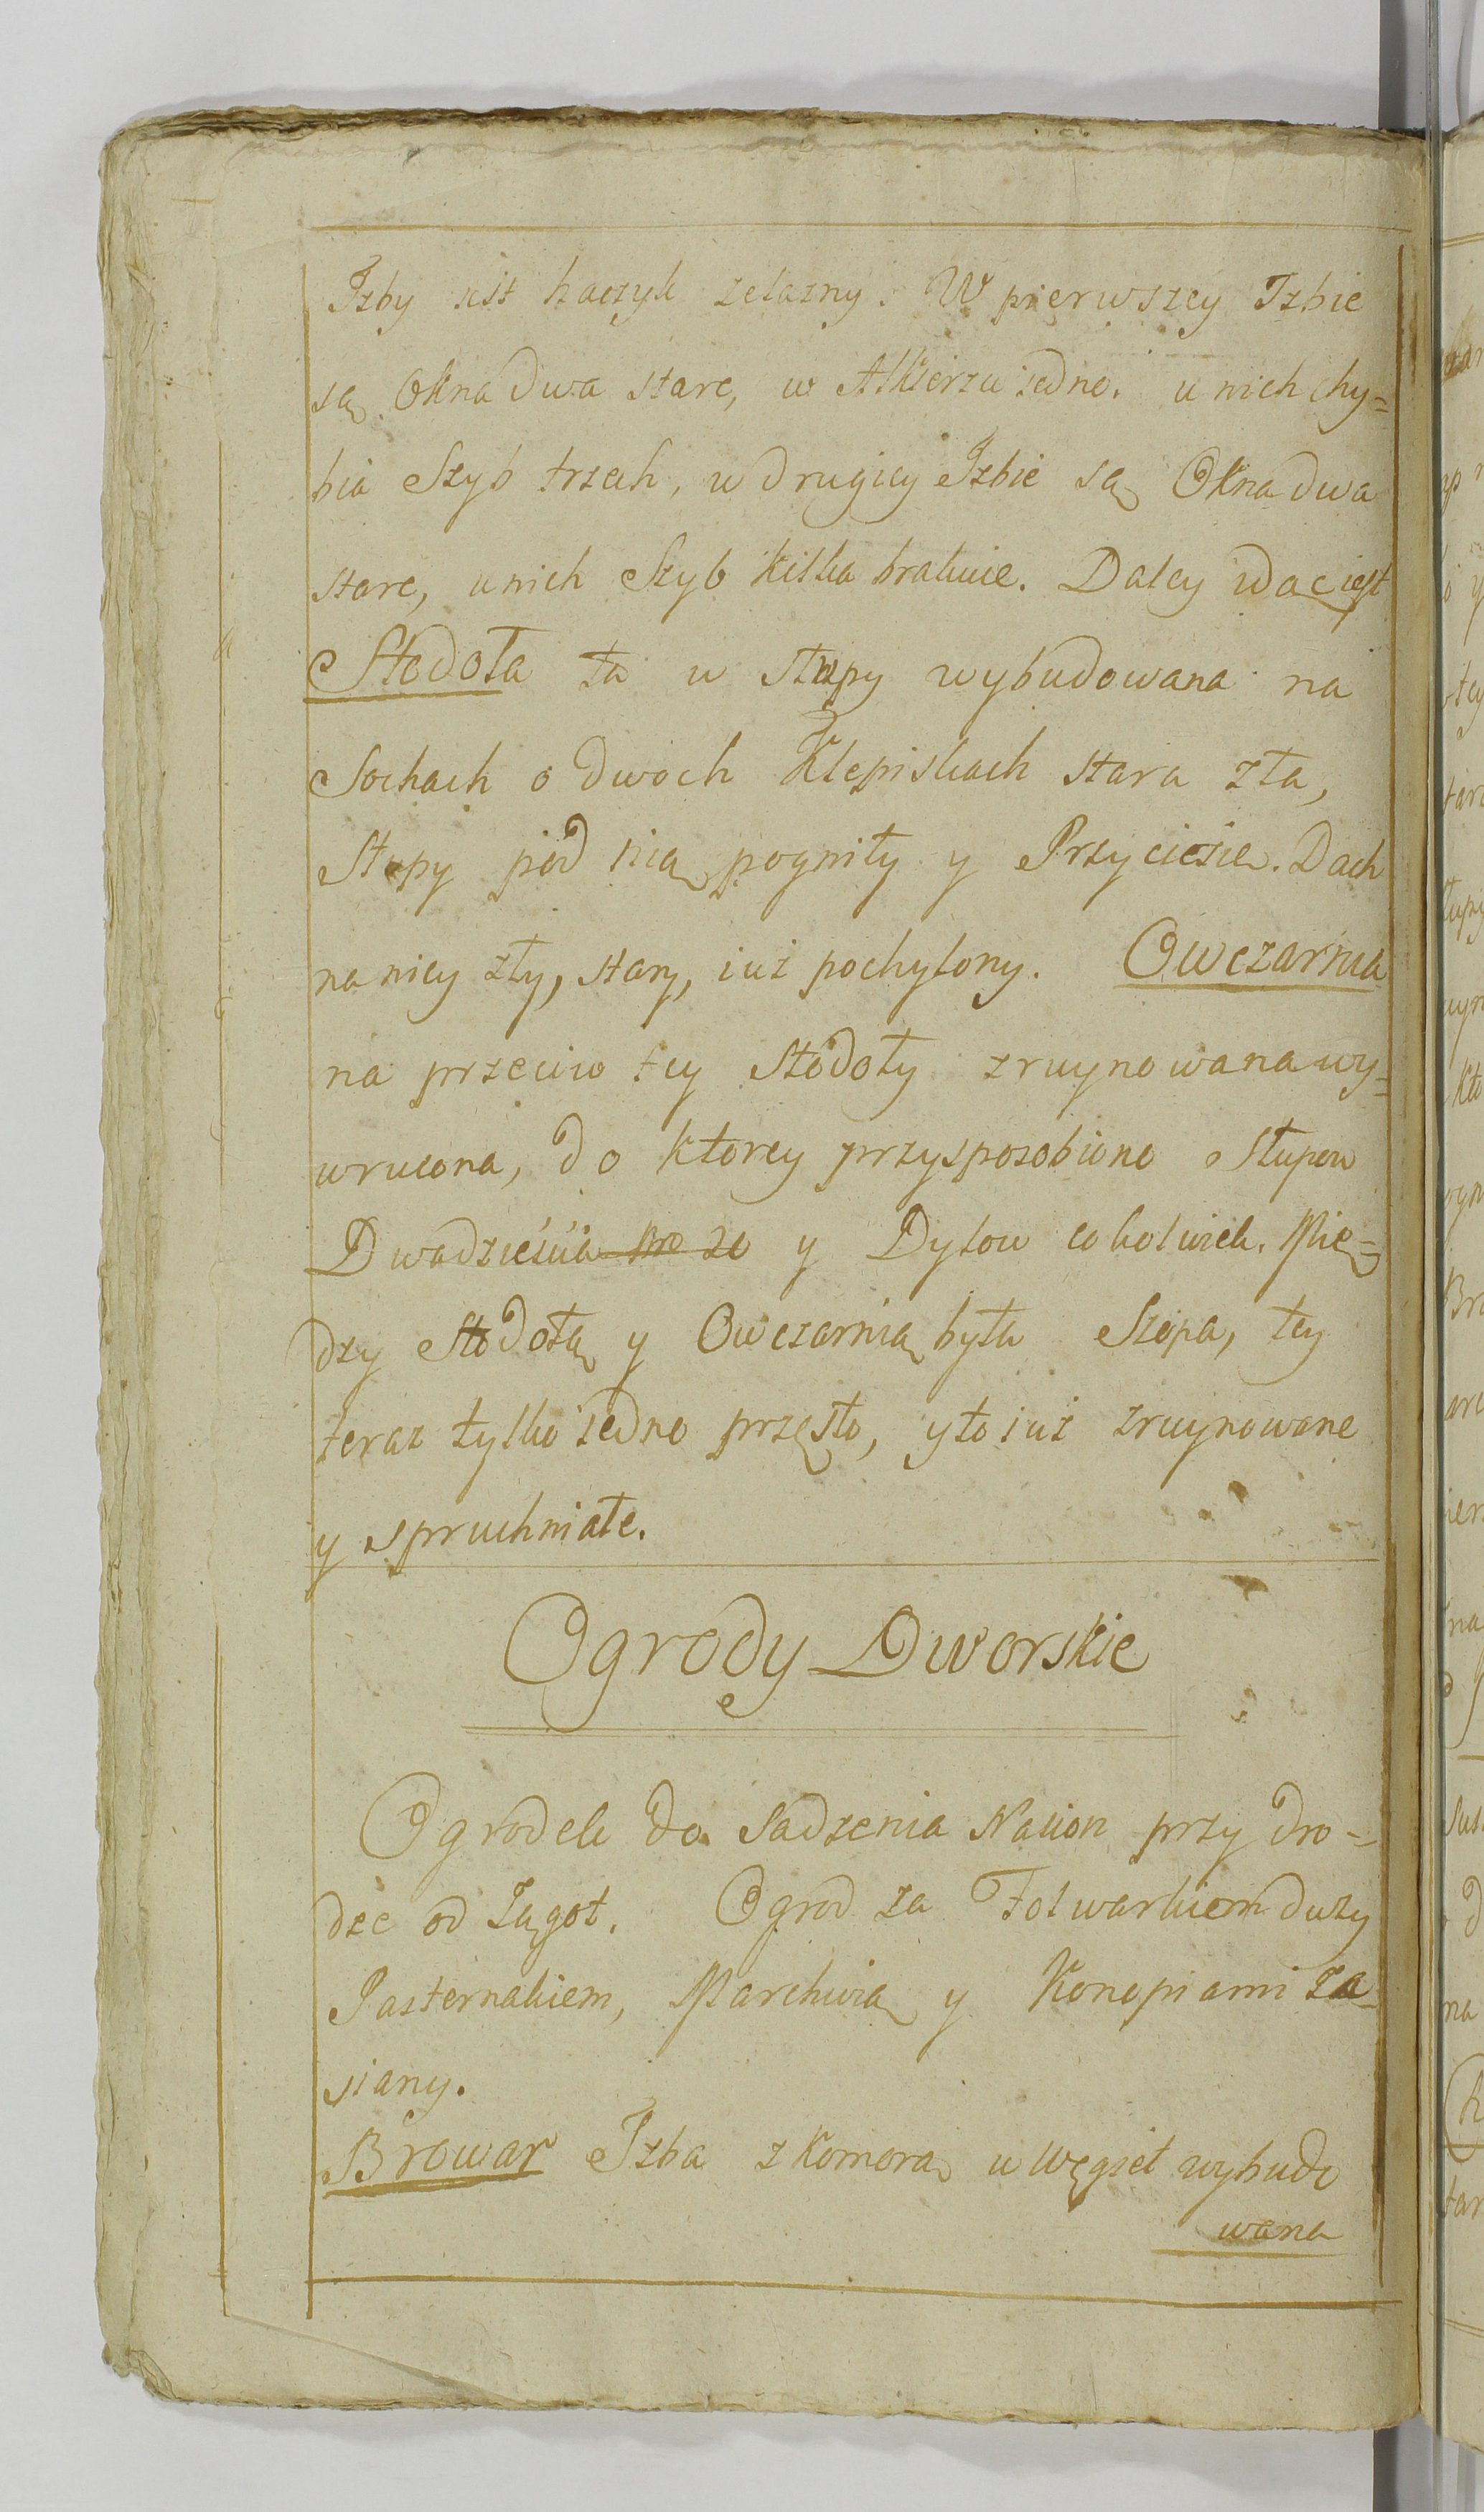 Izby iest haczyk zelazny. W pierwszey Izbie
są Okna dwa stare, w Alkierzu iedno. u nich chy=
bia Szyb trzech, w drugiey Izbie są Okna dwa
stare, u nich Szyb kilka brakuie. Daley idąc iest
Stodoła ta w słupy wybudowana na
Sochach o dwoch Klepiskach stara zła,
Słupy pod nią pogniły y Przyciesie. Dach
na niey zły, stary, iuż pochylony. Owczarnia
na przeciw tey Stodoły zruynowana wy=
wrucona, do ktorey przysposobiono Słupow
Dwadzieścia Nro 20 y Dylow cokolwiek. Mię=
dzy Stodołą y Owczarnią była Szopa, tey
teraz tylko iedno przęsło, y to iuż zruynowane
y spruchniałe.
Ogrody Dworskie
Ogrodek do Sadzenia Nasion przy dro=
dze od Zągot. Ogrod za Folwarkiem duży
Pasternakiem, Marchwią y Konopiami za
siany.
Browar Izba z Komorą w Węgieł wybudo
wana